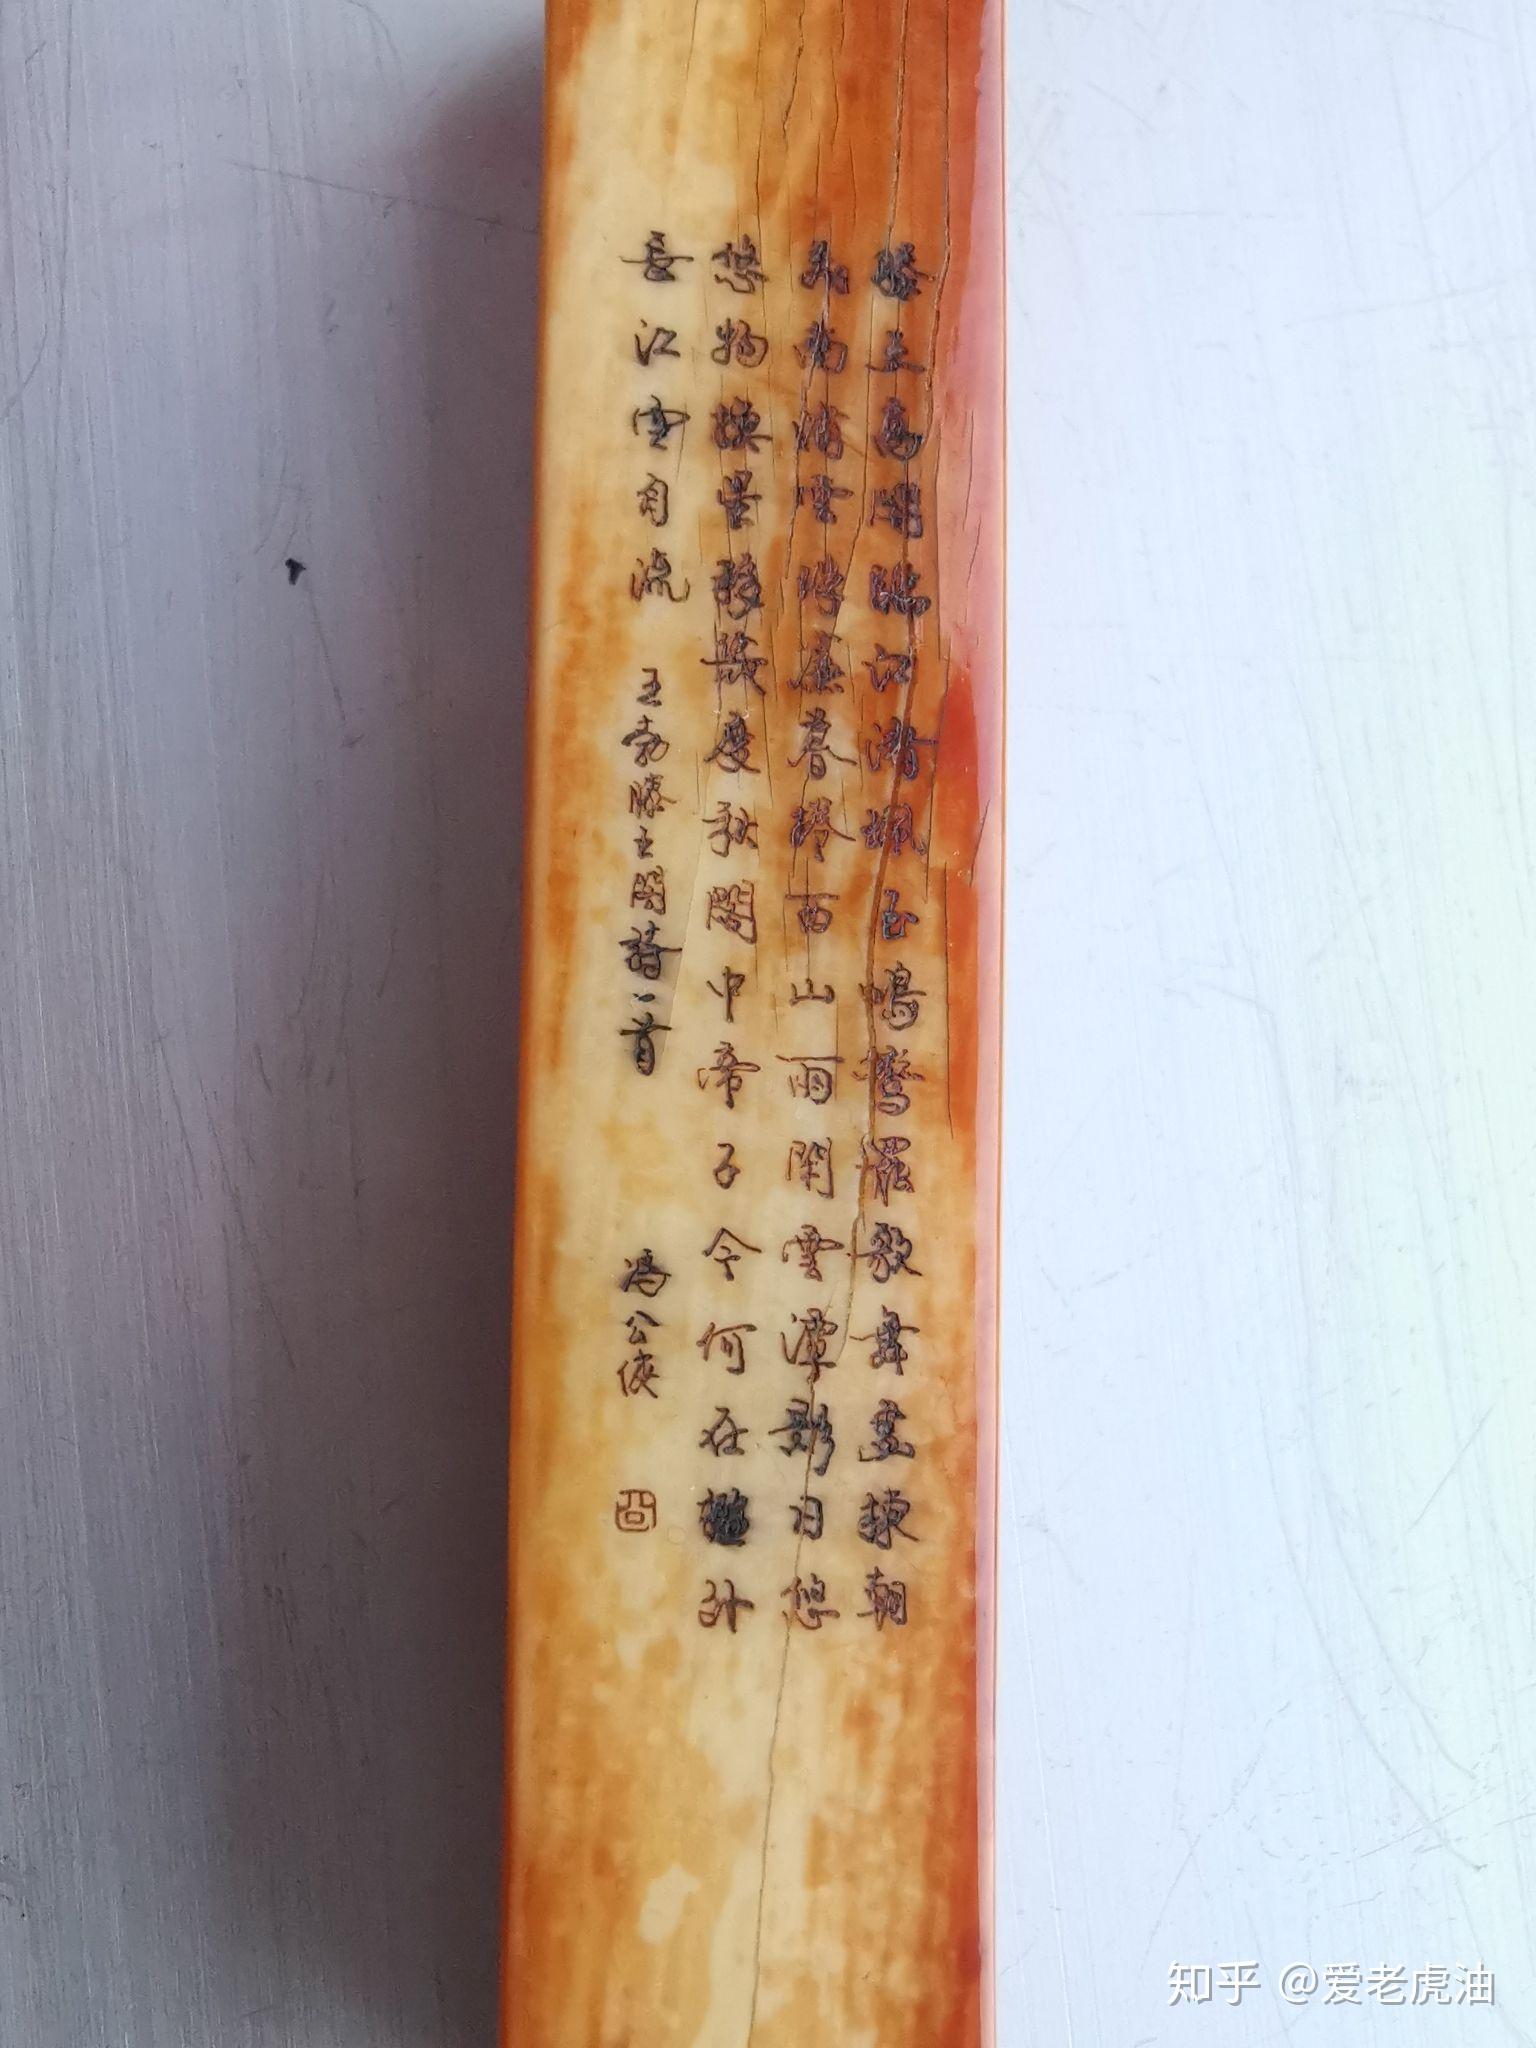 滕王高閣臨江渚珮玉鳴鸞罷歌舞畫棟朝
飛南浦雲珠簾暮捲西山雨閑雲潭影日悠
悠物換星移幾度秋閣中帝子今何在檻外
長江空自流 王勃滕王閣詩一首 馮公俠
知乎 @爱老虎油